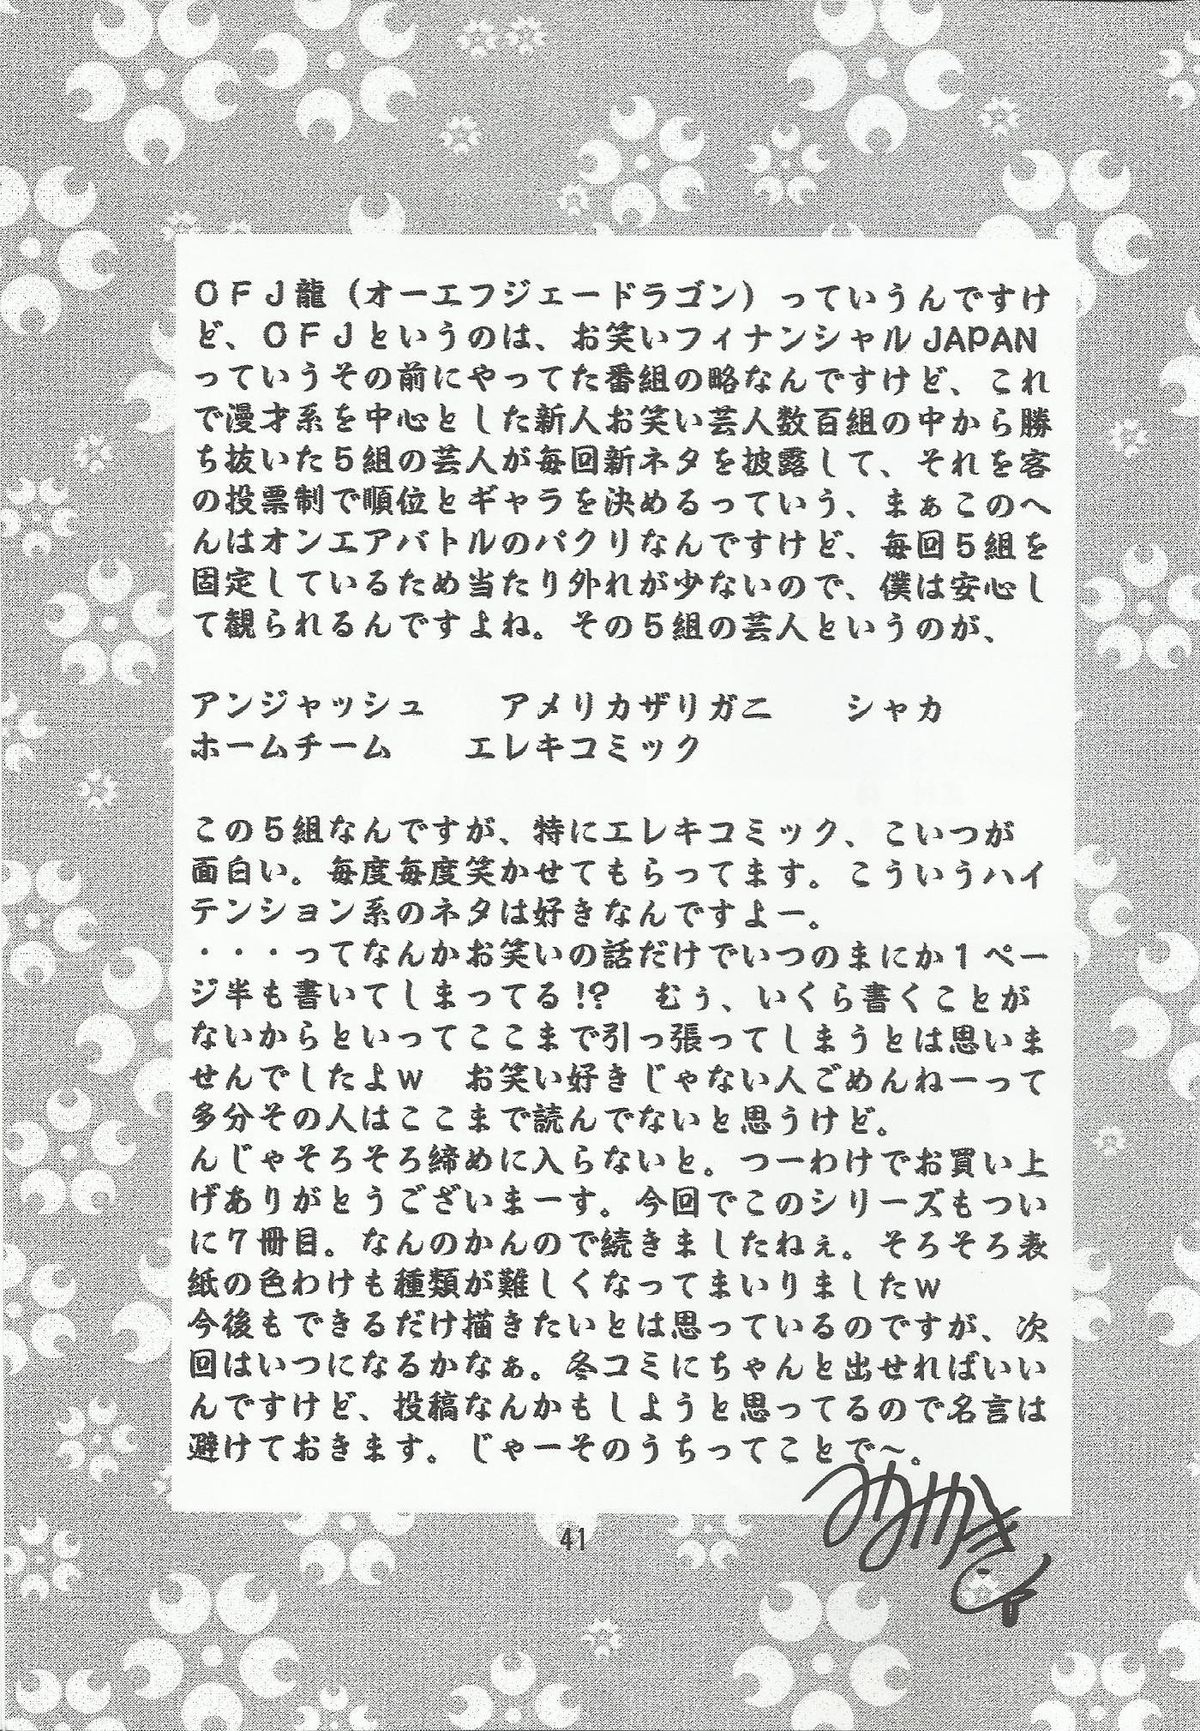 ＯＦＪ龍（オーエフジェードラゴン）っていうんですけ
ど、ＯＦＪというのは、お笑いフィナンシャルJAPAN
っていうその前にやってた番組の略なんですけど、これ
で漫才系を中心とした新人お笑い芸人数百組の中から勝
ち抜いた５組の芸人が毎回新ネタを披露して、それを客
の投票制で順位とギャラを決めるっていう、まぁこのへ
んはオンエアバトルのパクリなんですけど、毎回５組を
固定しているため当たり外れが少ないので、僕は安心し
て観られるんですよね。その５組の芸人というのが、
アンジャッシュ　　アメリカザリガニ　　シャカ
ホームチーム　　エレキコミック
この５組なんですが、特にエレキコミック、こいつが
面白い。毎度毎度笑かせてもらってます。こういうハイ
テンション系のネタは好きなんですよー。
・・・ってなんかお笑いの話だけでいつのまにか１ペー
ジ半も書いてしまってる!?　むぅ、いくら書くことが
ないからといってここまで引っ張ってしまうとは思いま
せんでしたよｗ　お笑い好きじゃない人ごめんねーって
多分その人はここまで読んでないと思うけど。
んじゃそろそろ締めに入らないと。つーわけでお買い上
げありがとうございまーす。今回でこのシリーズもつい
に７冊目。なんのかんので続きましたねぇ。そろそろ表
紙の色わけも種類が難しくなってまいりましたｗ
今後もできるだけ描きたいとは思っているのですが、次
回はいつになるかなぁ。冬コミにちゃんと出せればいい
んですけど、投稿なんかもしようと思ってるので名言は
避けておきます。じゃーそのうちってことで〜。
41